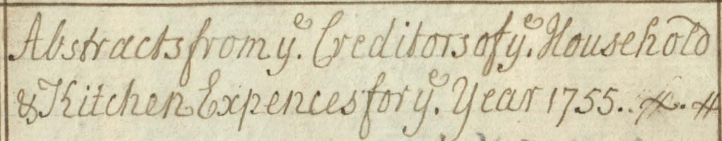 Abstracts from yᵉ. Creditors of yᵉ. Household
& Kitchen Expences for yᵉ. Year 1755..